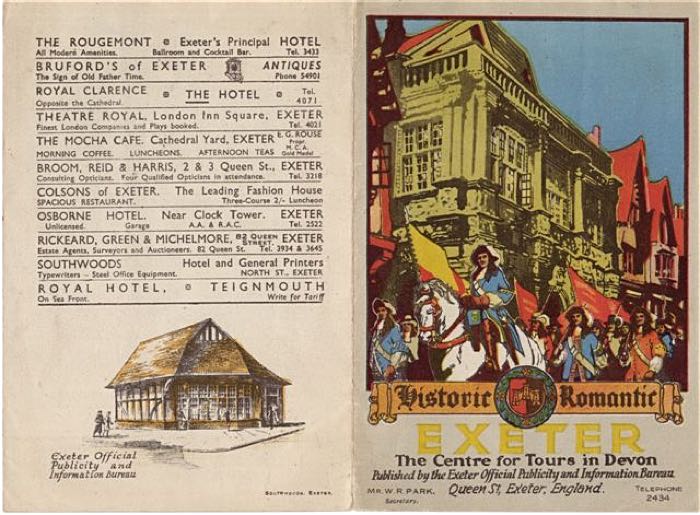 THE ROUGEMONT Exeter's Principal HOTEL
All Modern Amenities. Ballroom and Cocktail Bar. Tel. 3433
BRUFORD'S of EXETER ANTIQUES
The Sign of Old Father Time. Phone 54901
ROYAL CLARENCE THE HOTEL Tel.
Opposite the Cathedral. 4071
THEATRE ROYAL, London Inn Square, EXETER
Finest London Companies and Plays booked. Tel. 4021
THE MOCHA CAFE, Cathedral Yard, EXETER E. G. ROUSE
Propr.
M.C.A.
MORNING COFFEE. LUNCHEONS. AFTERNOON TEAS Gold Medal
BROOM, REID & HARRIS, 2 & 3 Queen St., EXETER
Consulting Opticians. Four Qualified Opticians in attendance. Tel. 3218
COLSONS of EXETER. The Leading Fashion House
SPACIOUS RESTAURANT. Three-Course 2/- Luncheon
OSBORNE HOTEL. Near Clock Tower. EXETER
Unlicensed. Garage A.A. & R.A.C. Tel. 2522
RICKEARD, GREEN & MICHELMORE, 82 QUEEN STREET, EXETER
Estate Agents, Surveyors and Auctioneers. 82 Queen St. Tel. 3934 & 3645
SOUTHWOODS Hotel and General Printers
Typewriters - Steel Office Equipment. NORTH ST., EXETER
ROYAL HOTEL, TEIGNMOUTH
On Sea Front. Write for Tariff
Exeter Official
Publicity and
Information Bureau
SOUTHWOODS, EXETER.
Historic Romantic
EXETER
The Centre for Tours in Devon
Published by the Exeter Official Publicity and Information Bureau
MR. W. R. PARK, Queen St, Exeter, England. TELEPHONE
Secretary. 2434